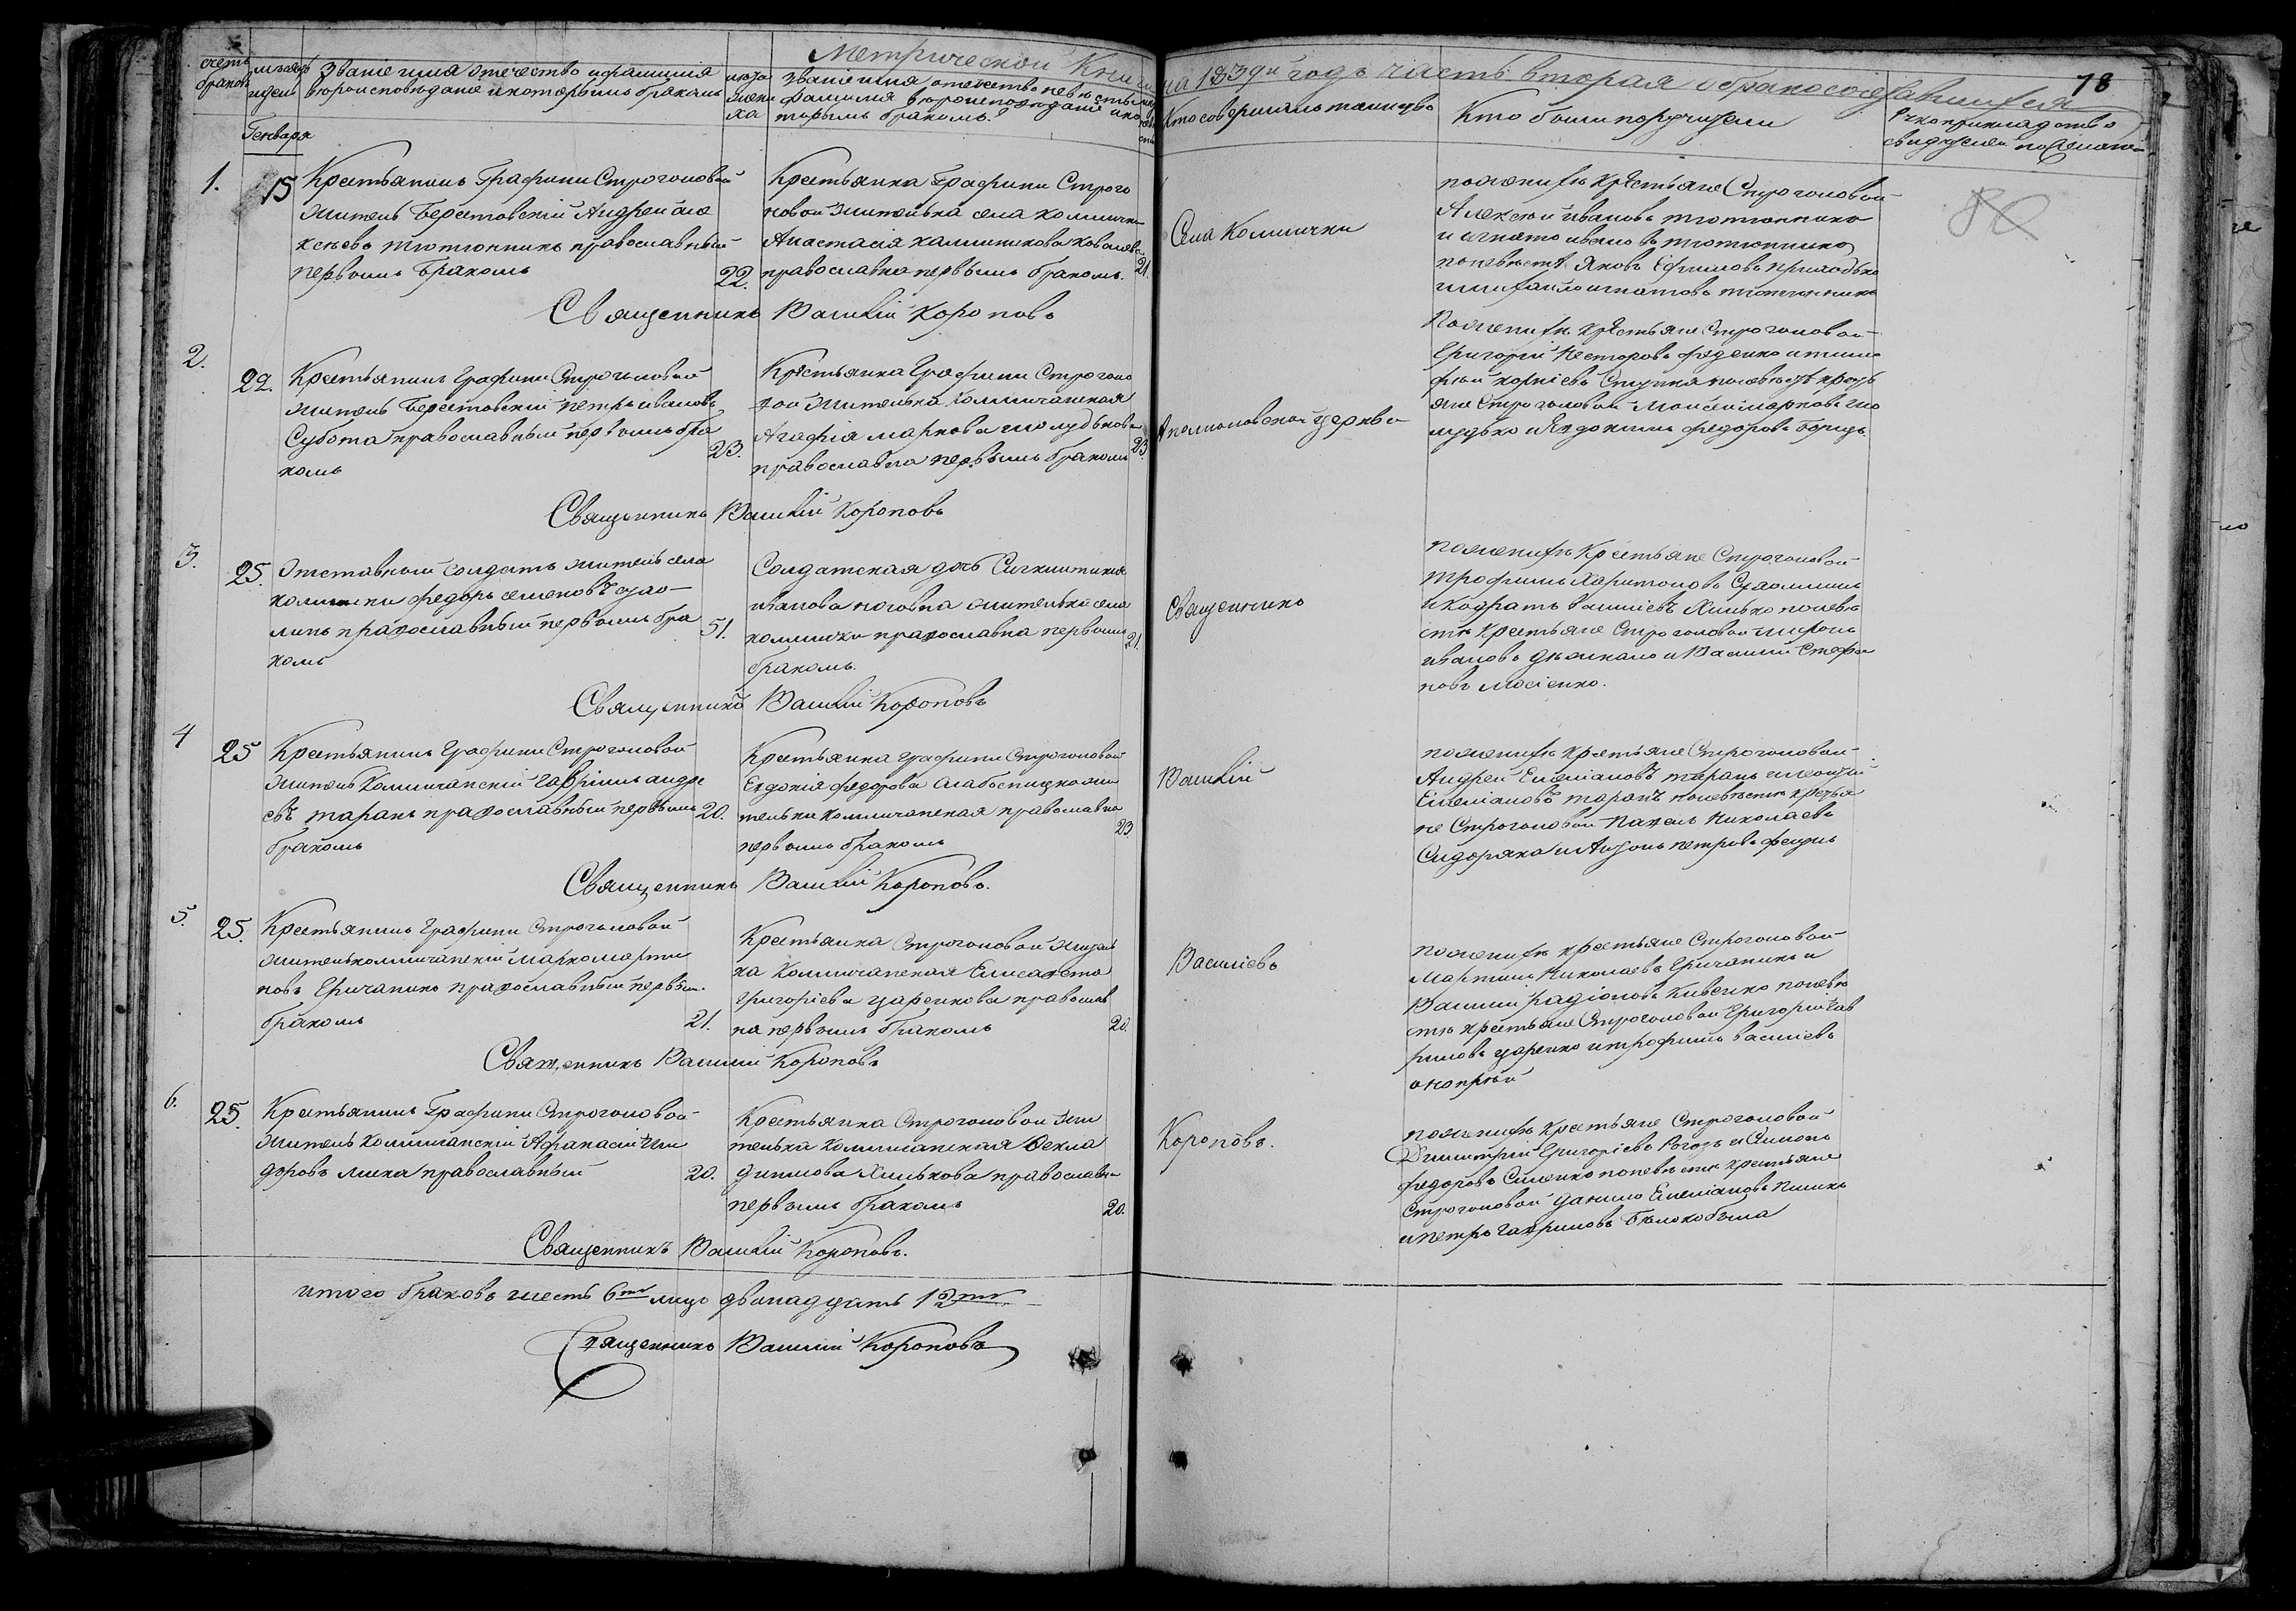 Метрической Книги на 1839й годъ часть вторая о бракосочетавшихся
78
счетъ браковъ
мѣсяцъ и дни
Званіе имя отечество и фамилія
вюроисповюданіе и которымъ бракомъ
люта жени ха
званіе имя отечество невюсты
фамилія вюроисповюданіе и ко
торымъ бракомъ.
Кто совершалъ таинство
Кто были поручители
Генваря
1.
15
Крестьянинъ Графини Строгоновой
житель Берестовскій Андрей Але
ксѣевъ тютюнникъ православный
первымъ бракомъ
22.
Крестьянка Графини Строго
новой жителька села комички
Анастасія калиникова ковалева
православна первымъ бракомъ.
21.
Села Комички
пожених крестьяне Строгоновой
Алексѣй ивановъ тютюнникъ
и игнатъ ивановъ тютюнникъ
поневѣст Яковъ Ефимовъ приходько
и михайло игнатовъ тютюнникъ
Священникъ Василій Короповъ
2.
22.
Крестьянинъ Графини Строгоновой
житель Берестовскій петръ ивановъ
Субота православный первымъ бра
комъ
23.
Крестьянка Графини Строгоно
вой жителька Комичанская
Агафія маркова
православна первымъ бракомъ
23.
церкви
Пожених крестьяне Строгоновой
Григорій Несторовъ феденко и тимо
фѣй корніевъ Ступка поневѣст кресть
яне Строгоновой Моисей марковъ
и Явдокимъ федоровъ
Священникъ Василій Короповъ
3.
25.
Отставный солдатъ житель села
комички федоръ семеновъ сухо
линъ православный первымъ бра
комъ
51.
Солдатская дочь
иванова жителька села
комички православна первымъ
бракомъ.
21.
Священникъ
пожених Крестьяне Строгоновой
трофимъ Харитоновъ
и Кодратъ василіевъ Хилько поневѣ
стѣ крестьяне Строгоновой
ивановъ и Василій Стефа
новъ мосіенко.
Священникъ Василій Короповъ
4
25
Крестьянинъ Графини Строгоновой
житель Комичанскій гавріилъ андре
евъ таранъ православный первымъ
бракомъ
20.
Крестьянка графини Строгоновой
Евдокія федорова жи
телька комичанская православна
первымъ бракомъ
23.
Василій
пожених крестьяне Строгоновой
Андрей Емеліановъ таранъ и
Емеліановъ таранъ поневѣстѣ крестья
не Строгоновой Павелъ Николаевъ
Сидоряка и Антонъ петровъ
Священникъ Василій Короповъ.
5.
25.
Крестьянинъ Графини Строгоновой
житель комичанскій Марко марти
новъ Гричанико православный первым
бракомъ
21.
Крестьянка Строгоновой житель
ка Комичанская Елисавета
григоріева царенкова православ
на первымъ бракомъ
20.
Василіевъ
пожених крестьяне Строгоновой
мартинъ Николаевъ Гричаникъ и
Василій радіоновъ Кивенко поневѣ
стѣ крестьяне Строгоновой Григорій гав
риловъ царенко и трофимъ василіевъ
онопрѣй
Священникъ Василій Короповъ
6.
25.
Крестьянинъ Графини Строгоновой
житель Комичанскій Афанасій
православный
20.
Крестьянка Строгоновой жи
телька комичанская Фекла
Хилькова православна
первымъ бракомъ
20.
Короповъ.
пожених крестьяне Строгоновой
Димитрій Григоріевъ Рогозъ и Симонъ
федоровъ Сименко поневѣстѣ крестьяне
Строгоновой данило Емеліановъ
и петръ гавриловъ Бѣлокобыла
Священникъ Василій Короповъ.
итого браковъ шесть 6ть лицъ двенадцать 12ть
Священникъ Василій Короповъ